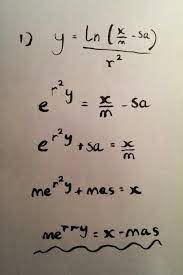 1) y = ln(x/m - sa) / r²
e^(r²y) = x/m - sa
e^(r²y) + sa = x/m
me^(r²y) + mas = x
me^(rry) = x - mas